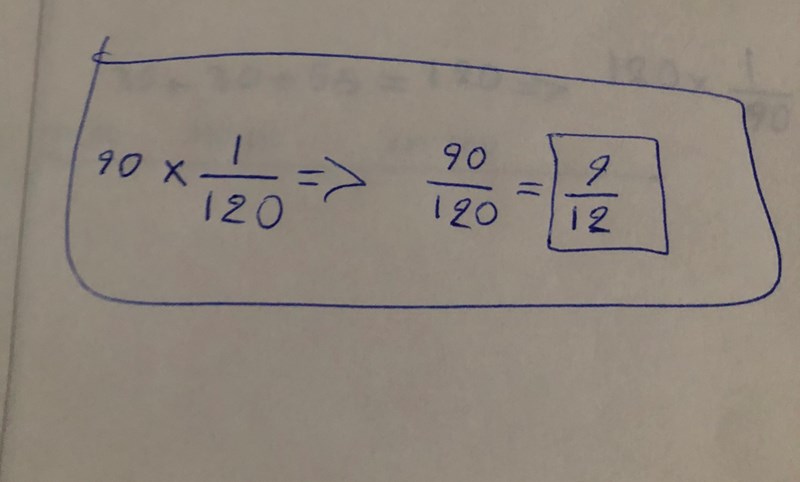 90 × 1/120 => 90/120 = 9/12